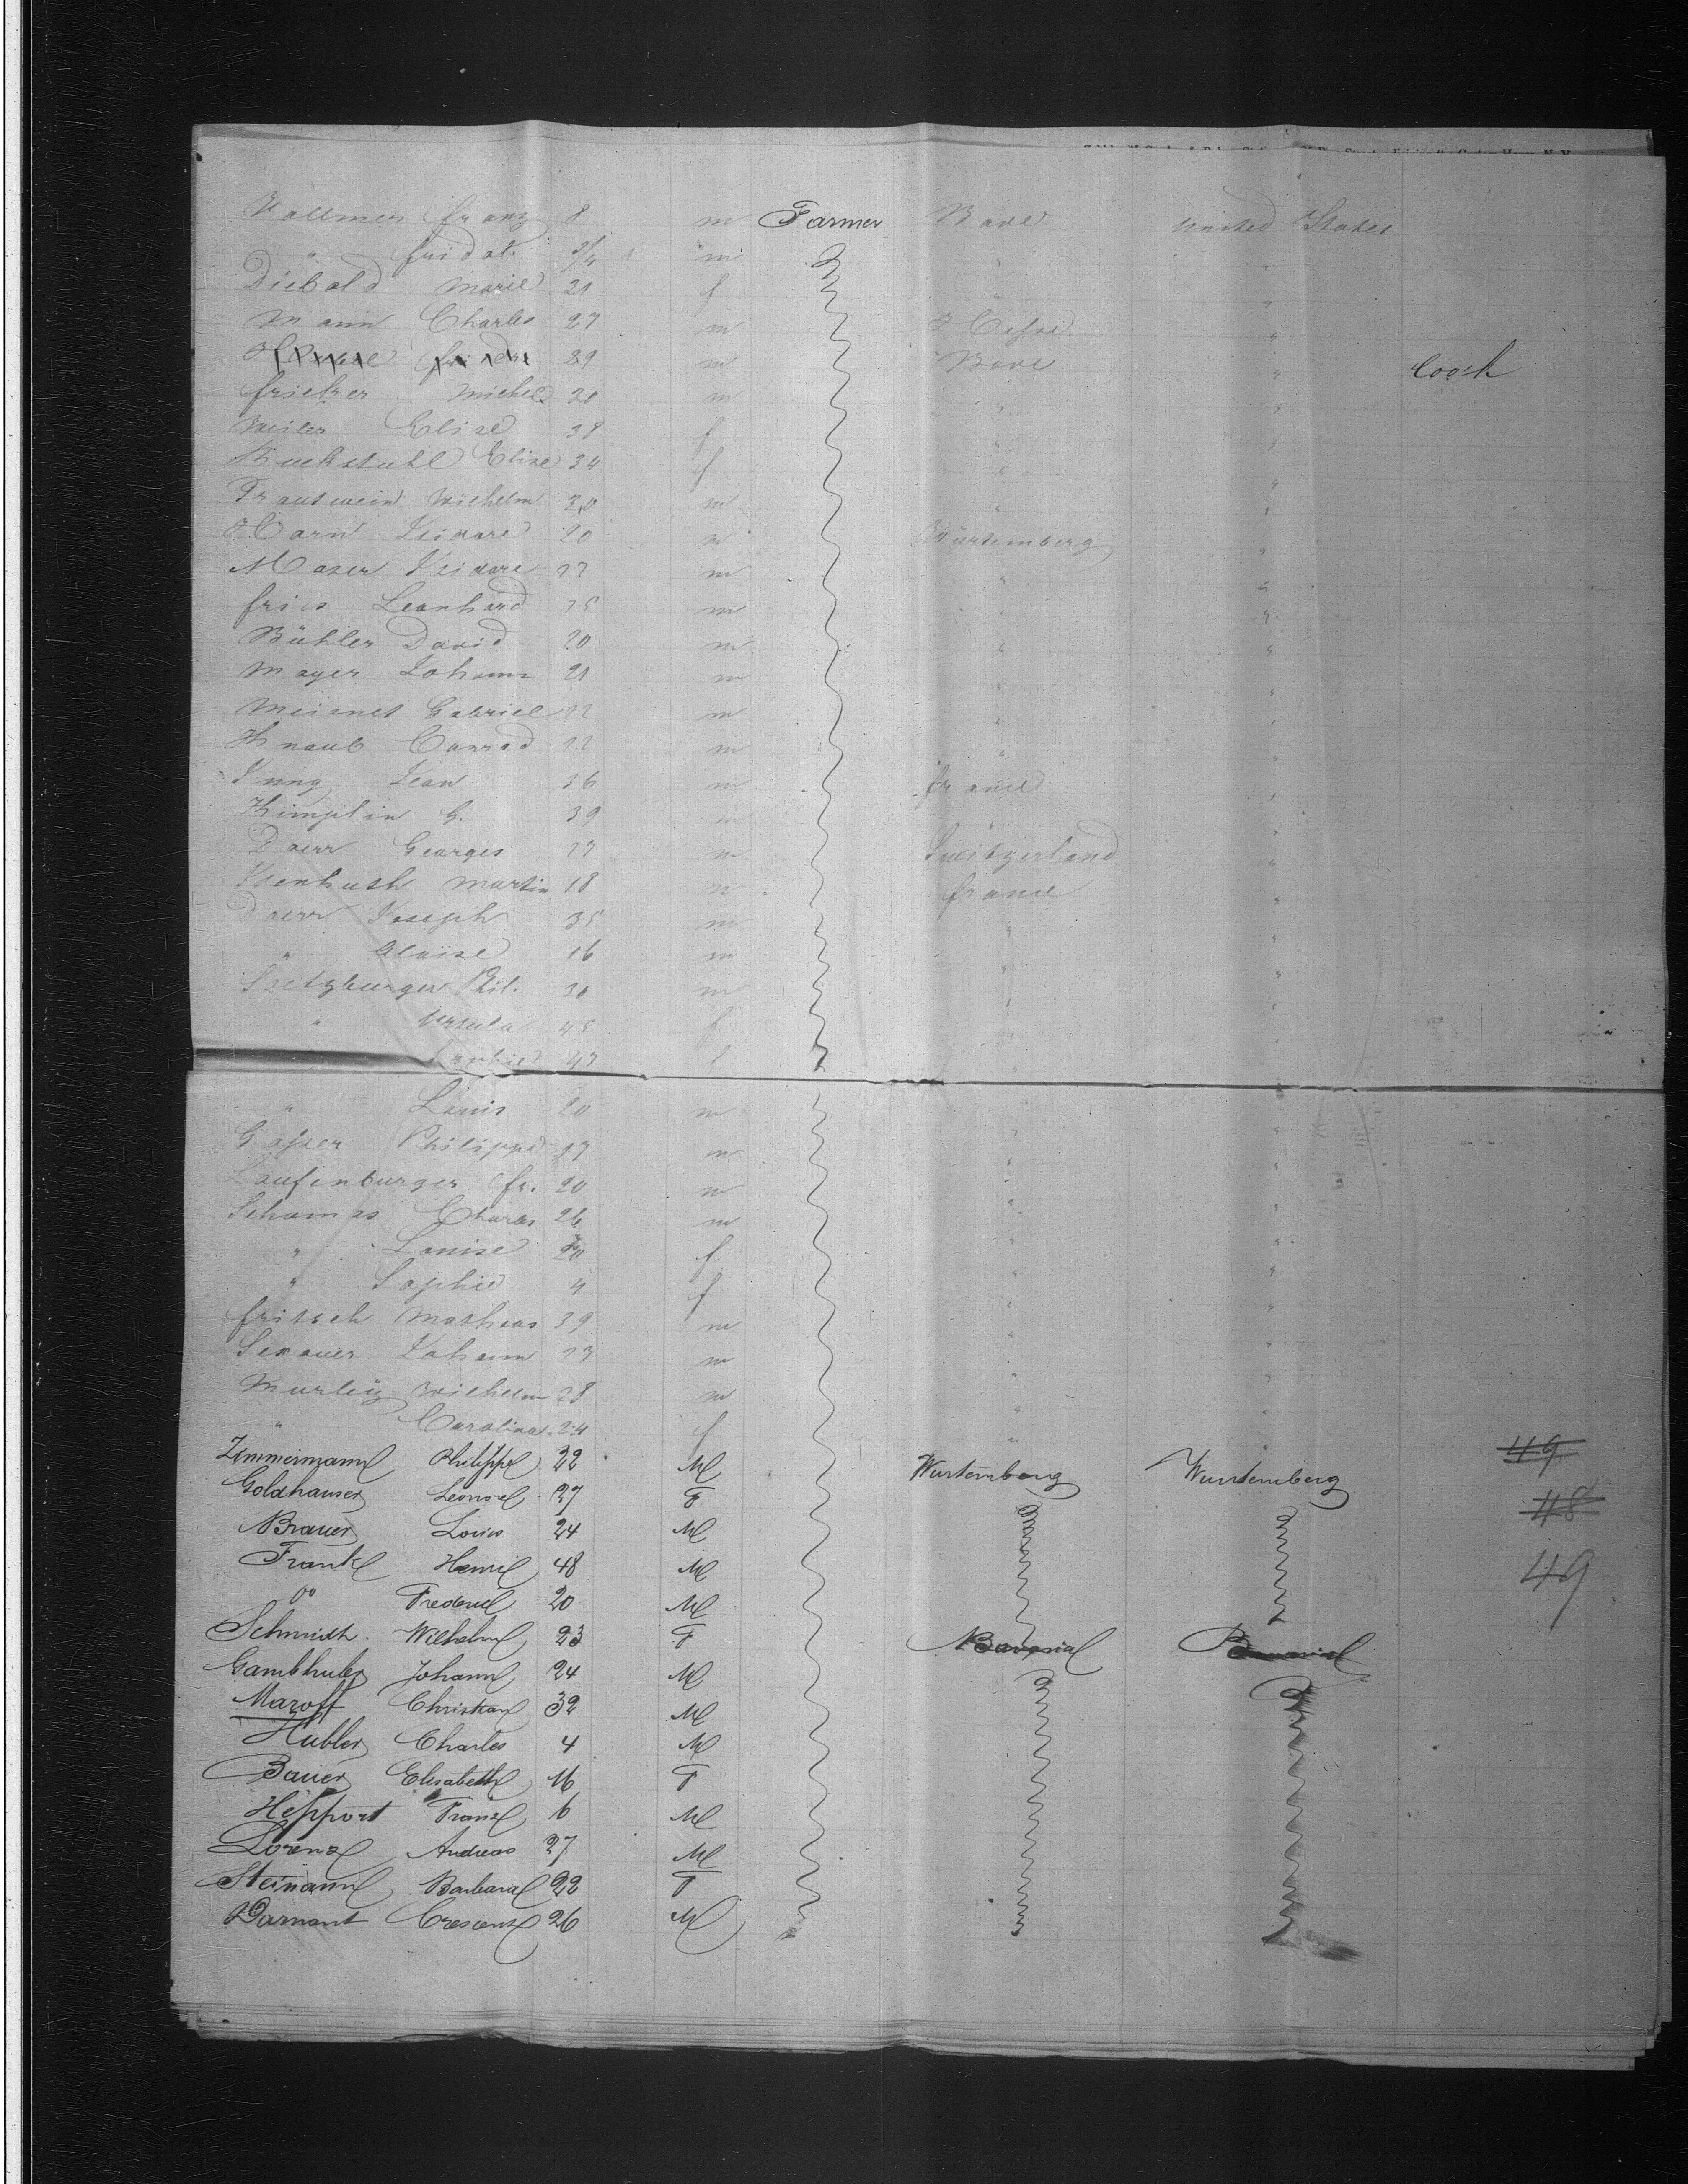 Vollmer Franz 8 m Farmer Bade United States
" fridol. 3/4 m " "
Diebold Marie 21 f " "
Mann Charles 27 m Hesse "
29 m Bade " Cook
Michel 20 m " "
Weiler Elise 38 f " "
Buckstuhl Elise 34 f " "
Trautwein Wilhelm 30 m " "
Horn Isidore 20 m Würtemberg "
Moser Isidore 27 m " "
fries Leonhard 25 m " "
Bühler David 20 m " "
Mayer Johann 21 m " "
Gabriel 22 m " "
Knaub Conrad 22 m " "
Jung Jean 36 m france "
Kimplin G. 39 m "
Doerr Georges 23 m Switzerland "
Martin 18 m france "
Doerr Joseph 35 m " "
" Aloise 16 m " "
Phil. 30 m " "
" Ursula 45 f " "
" 47 f " "
" Louis 20 m "
Gasser Philippe 27 m " "
Laufenburger fr. 20 m " "
Schomas Charles 26 m " "
" Louise 20 f " "
" Sophie 4 f " "
fritsch Mathias 39 m " "
Johann 23 m " "
Wilhelm 28 m " "
" Carolina 24 f " "
Zimmermann Philippe 22 M Wurtemberg Wurtemberg 49
Goldhauser Leonore 27 F 48
Brauer Louis 24 M
Frank Henri 48 M 49
do Frederic 20 M
Schmidt Wilhelm 23 F Bavaria Bavaria
Gambhuler Johann 24 M
Maroff Christian 32 M
Hubler Charles 4 M
Bauer Elisabeth 16 F
Hepport Franz 6 M
Lorenz Andreas 27 M
Steinann Barbara 22 F
Darnant Crescenz 26 M